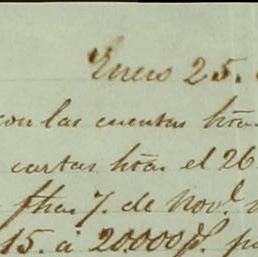 Enero 25.
con las cuentas hta.
cartas hta. el 26
fha. 7. de Nov.l
15. a 20000 p.